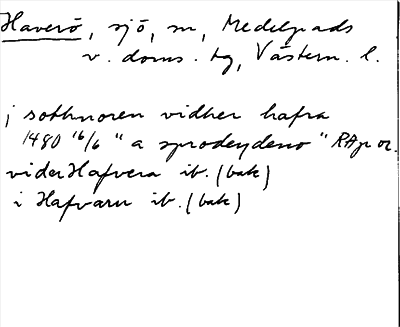 Haverö, sjö, m, Medelpads
v. doms. tg, Västern. l.
j sothnoren vidher hafra
1480 16/6 "a sprodeydeno" RAp or.
vider Hafvera ib. (bak)
i Hafvaru ib. (bak)